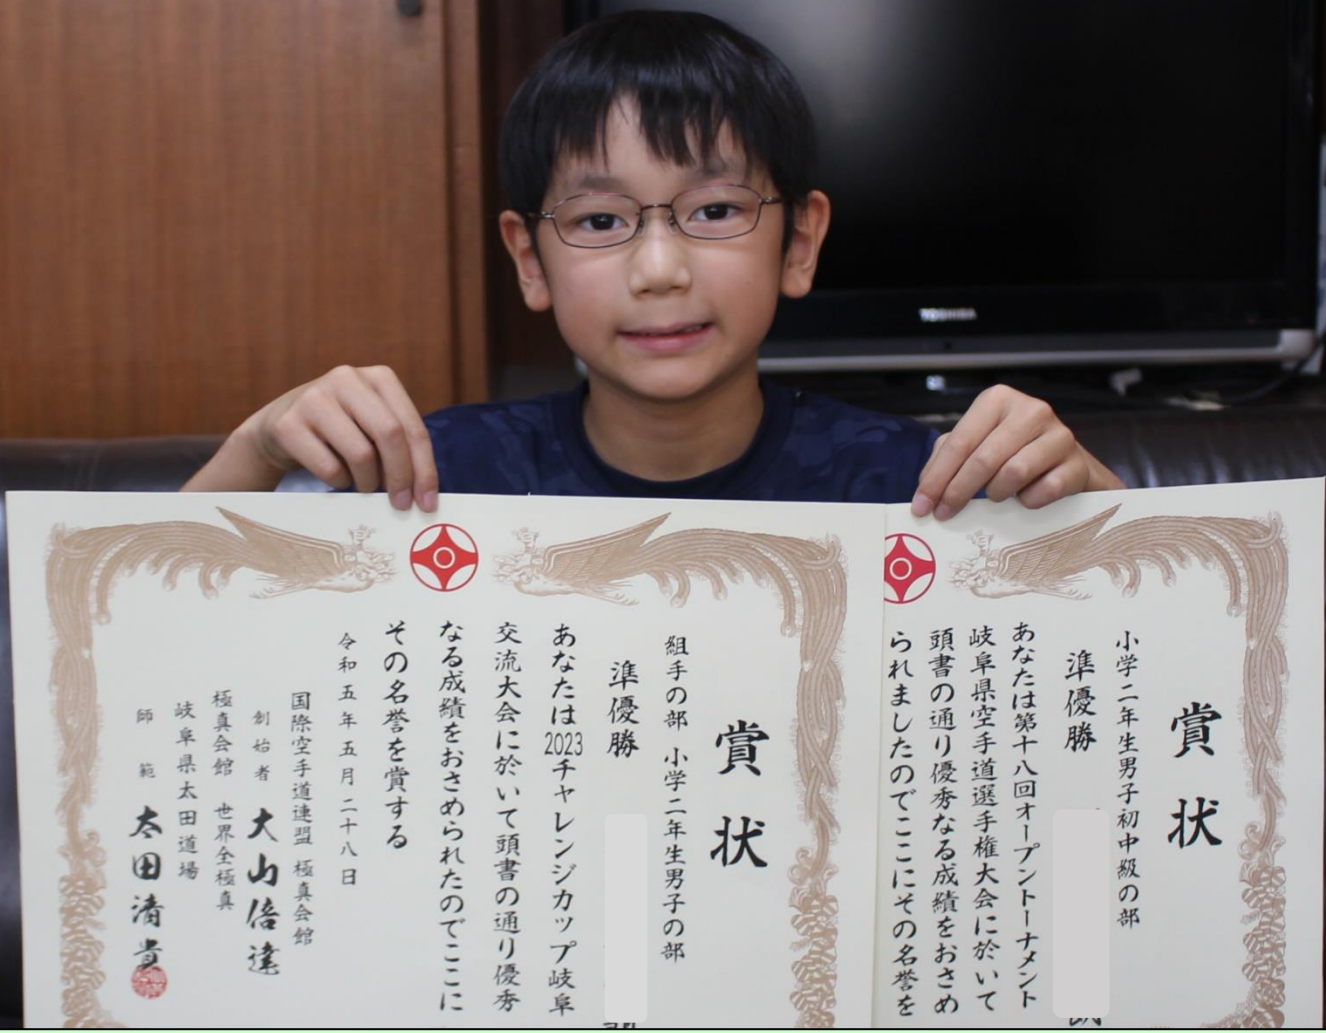 TOSHIBA
賞状
小学二年生男子初中級の部
準優勝
あなたは第十八回オープントーナメント
岐阜県空手道選手権大会に於いて
頭書の通り優秀なる成績をおさめ
られましたのでここにその名誉を
賞状
組手の部 小学二年生男子の部
準優勝
あなたは2023チャレンジカップ岐阜
交流大会に於いて頭書の通り優秀
なる成績をおさめられたのでここに
その名誉を賞する
令和五年五月二十八日
国際空手道連盟 極真会館
創始者 大山倍達
極真会館 世界全極真
岐阜県太田道場
師範 太田清貴